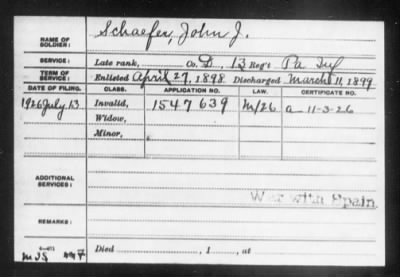 NAME OF SOLDIER: Schaefer, John J.
SERVICE: Late rank, Co. D, 13 Reg't Pa Inf
TERM OF SERVICE: Enlisted April 27, 1898 Discharged March 11, 1899
DATE OF FILING. CLASS. APPLICATION NO. LAW. CERTIFICATE NO.
1926 July 13 Invalid, 1547639 M/26 a-11-3-26
Widow,
Minor,
ADDITIONAL SERVICES:
War with Spain
REMARKS:
Died , 1 , at